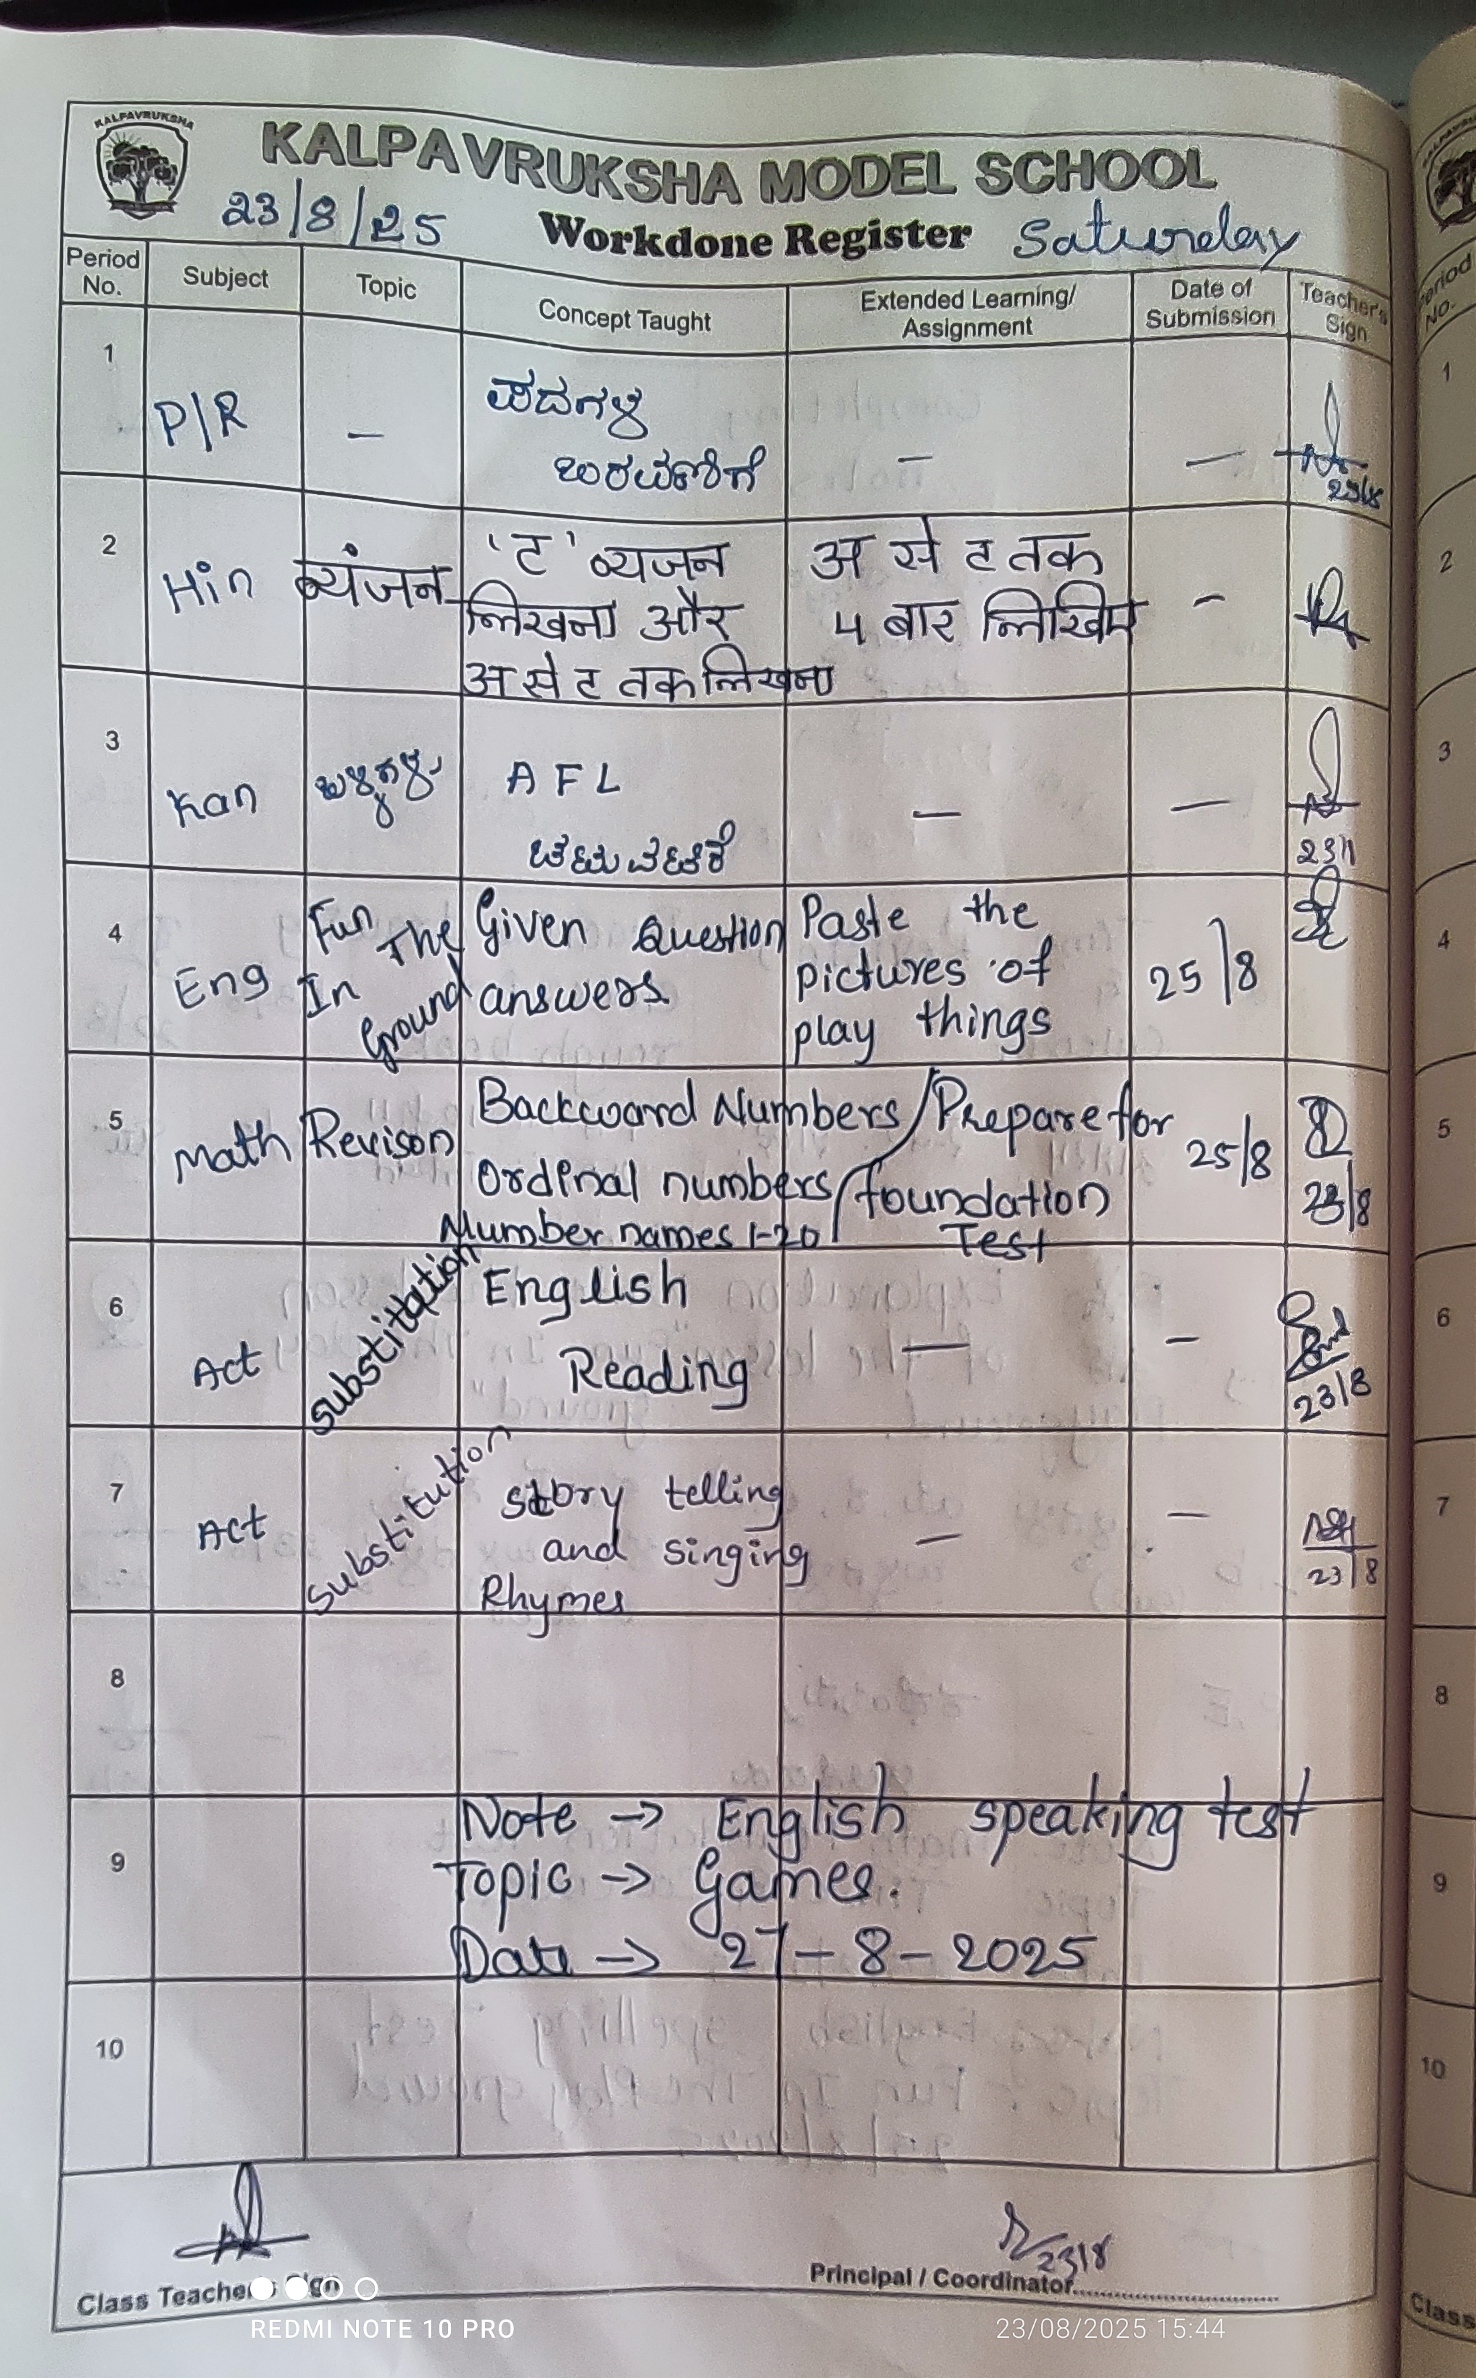 KALPAVRUKSHA
KALPAVRUKSHA MODEL SCHOOL
23/8/25 Workdone Register Saturday
Period No. Subject Topic Concept Taught Extended Learning/ Assignment Date of Submission Teacher's Sign
1 P/R — ಪದಗಳ
ಬರವಣಿಗೆ — —
23/8
2 Hin व्यंजन 'ट' व्यजन अ से ट तक —
लिखना और 4 बार लिखिए
अ से ट तक लिखना
3 Kan AFL — —
ಚಟುವಟಿಕೆ
4 Eng Fun In The Ground Given Question answers Paste the
pictures of
play things 25/8
5 Math Revison Backward Numbers / Prepare for 25/8
Ordinal numbers / foundation 23/8
Number names 1-20 / Test
6 Act English — —
Reading 23/8
7 Act Substitution Story telling — —
and singing
Rhymes 23/8
8
9 Note → English speaking test
Topic → Games.
Date → 27-8-2025
10
23/8
Class Teacher's Sign Principal / Coordinator
REDMI NOTE 10 PRO 23/08/2025 15:44
Period No.
1
2
3
4
5
6
7
8
9
10
Class